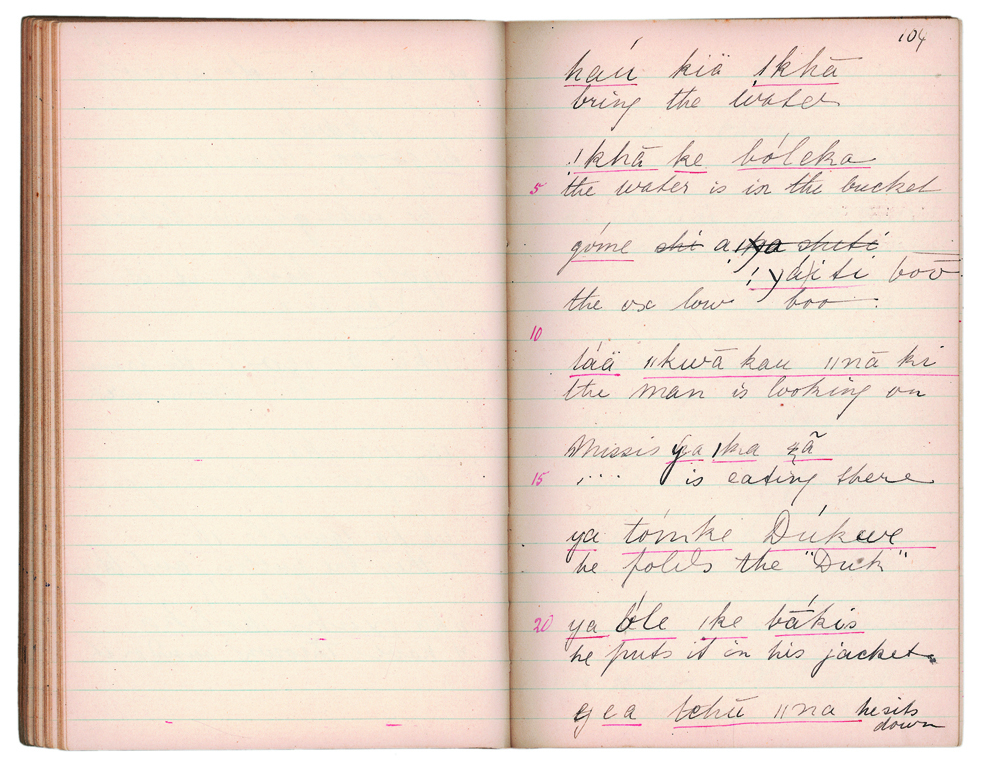 104
háú kiä ǀkhā
bring the water
!khā ke bóleka
5 the water is in the bucket
góme shi a
boō
the ox low boo
10
táä ǁkwā kau ǁnā ki
the man is looking on
Missis ya ǀka
15 " is eating there
ya tómke Dúkwe
he folds the "Duk"
20 ya óle ǀke bákis
he puts it in his jacket
yea tchū ǁna he sits
down